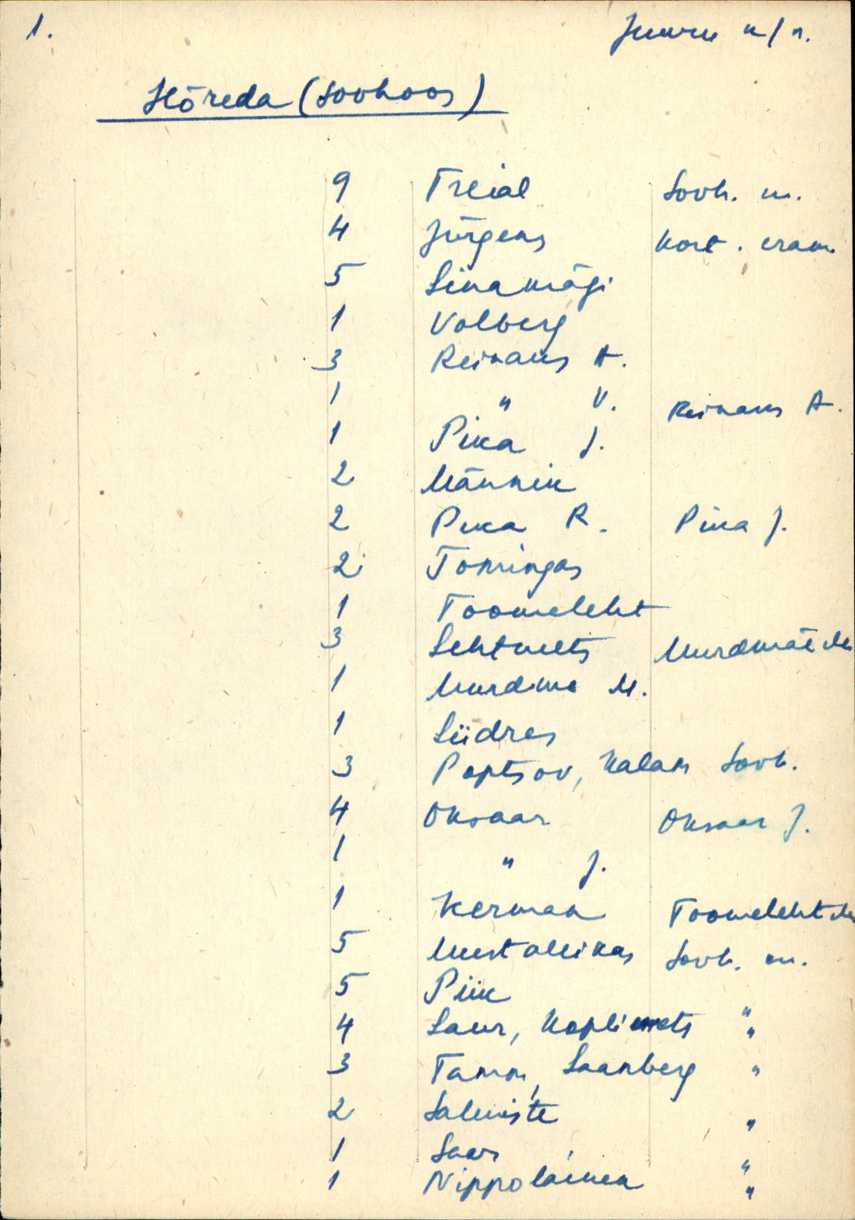 1. Juuru k/n.
Hõreda (sovhoos)
9 Treial Sovh. m.
4 Jürgens kort. eram.
5 Linamägi
1 Volberg
3 Reinans A.
1 " V. Reinans A.
1 Pika J.
2 Männik
2 Pika R. Pika J.
2 Tomingas
1 Toomeleht
3 Lehtmets
1 M.
1 Südres
3 Poptsov, Kalam Sovh.
4 Oksaar Oksaar J.
1 " J.
1 Kerman Toomeleht
5 Mustallikas Sovh. m.
5 Piik
4 Saur, Koplimets "
3 Tamm, Saanberg "
2 Salmiste "
1 Saar "
1 Nippolainen "